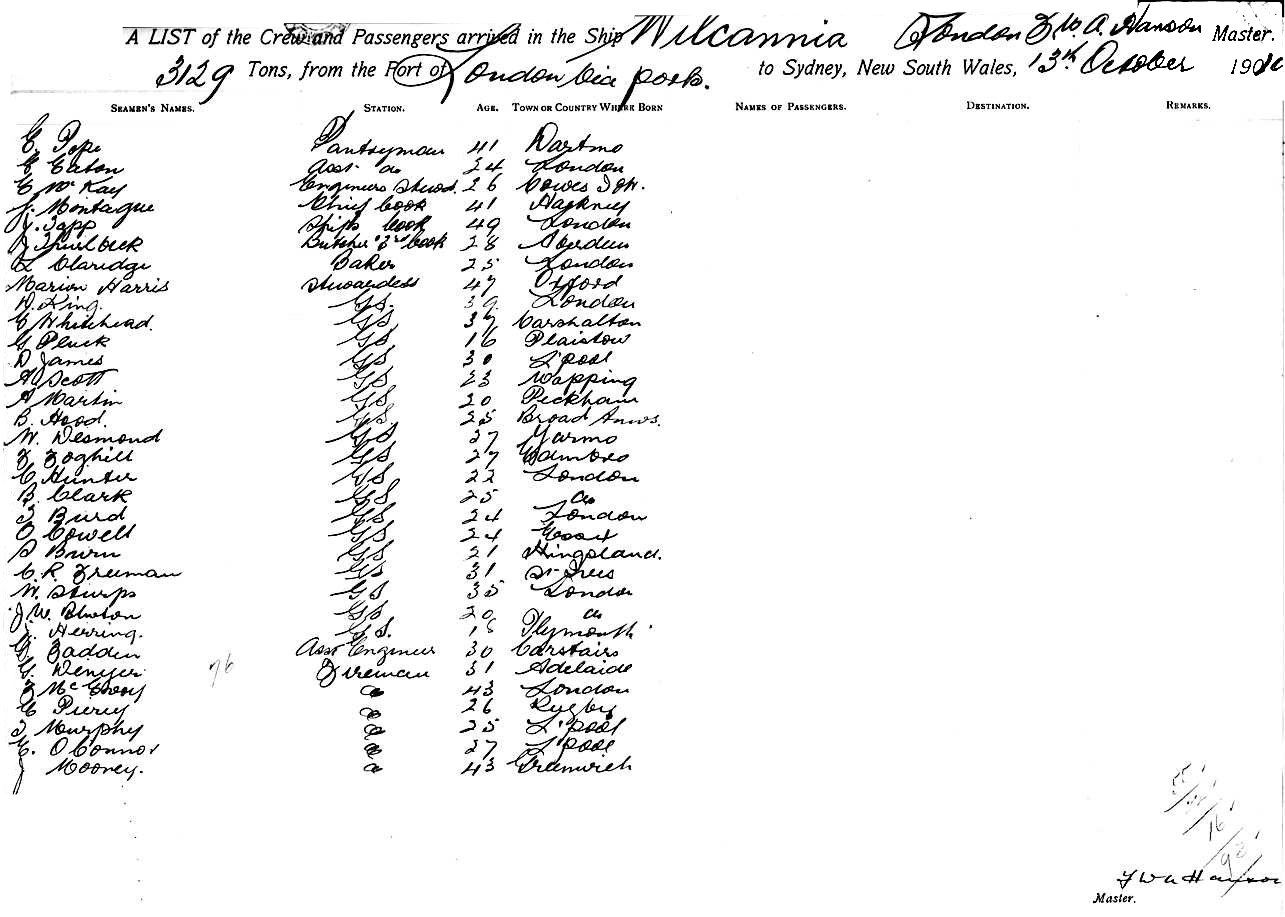 A LIST of the Crew and Passengers arrived in the Ship Wilcannia London F W. A. Hanson Master.
3129 Tons, from the Port of London via ports. to Sydney, New South Wales, 13th October 19
SEAMEN'S NAMES. STATION. AGE. TOWN OR COUNTRY WHERE BORN NAMES OF PASSENGERS. DESTINATION. REMARKS.
E. Pope Pantryman 41 Dartmo
E Eaton Asst do 24 London
E McKay Engineers Stewd. 26 Cowes IoW.
J. Montague Chief Cook 41 Hackney
J. Tapp Ships Cook 49 London
Butcher & 2nd Cook 28 Aberdeen
L Claridge Baker 25 London
Marion Harris Stewardess 47 Oxford
King. GS. 39 London
E Whitehead. GS 37 Carshalton
G Pluck GS 16 Plaistow
D James GS 30 L'pool
A Scott GS 23 Wapping
A Martin GS 20 Peckham
B. Hood. GS. 25 Broad
W. Desmond GS 27 Yarmo
F Foghill GS 27
C Hunter GS 22 London
B. Clark GS 25 do
T Burd GS 24 London
O Cowell GS 24 Essex
S Burn GS 21 Kingsland.
C. R. Freeman GS 31 St Ives
W. Sturps GS 35 London
J. W. GS 20 do
J. Herring. G S. 18 Plymouth
G. Fadden Asst Engineer 30 Carstairs
G. Denyer 76 Fireman 31 Adelaide
F McEvoy do 43 London
C Piercy do 26 Rugby
T. Murphy do 25 L'pool
E. O'Connor do 27 L'pool
J Mooney. do 43 Greenwich
55
16
98
F W A Hanson
Master.